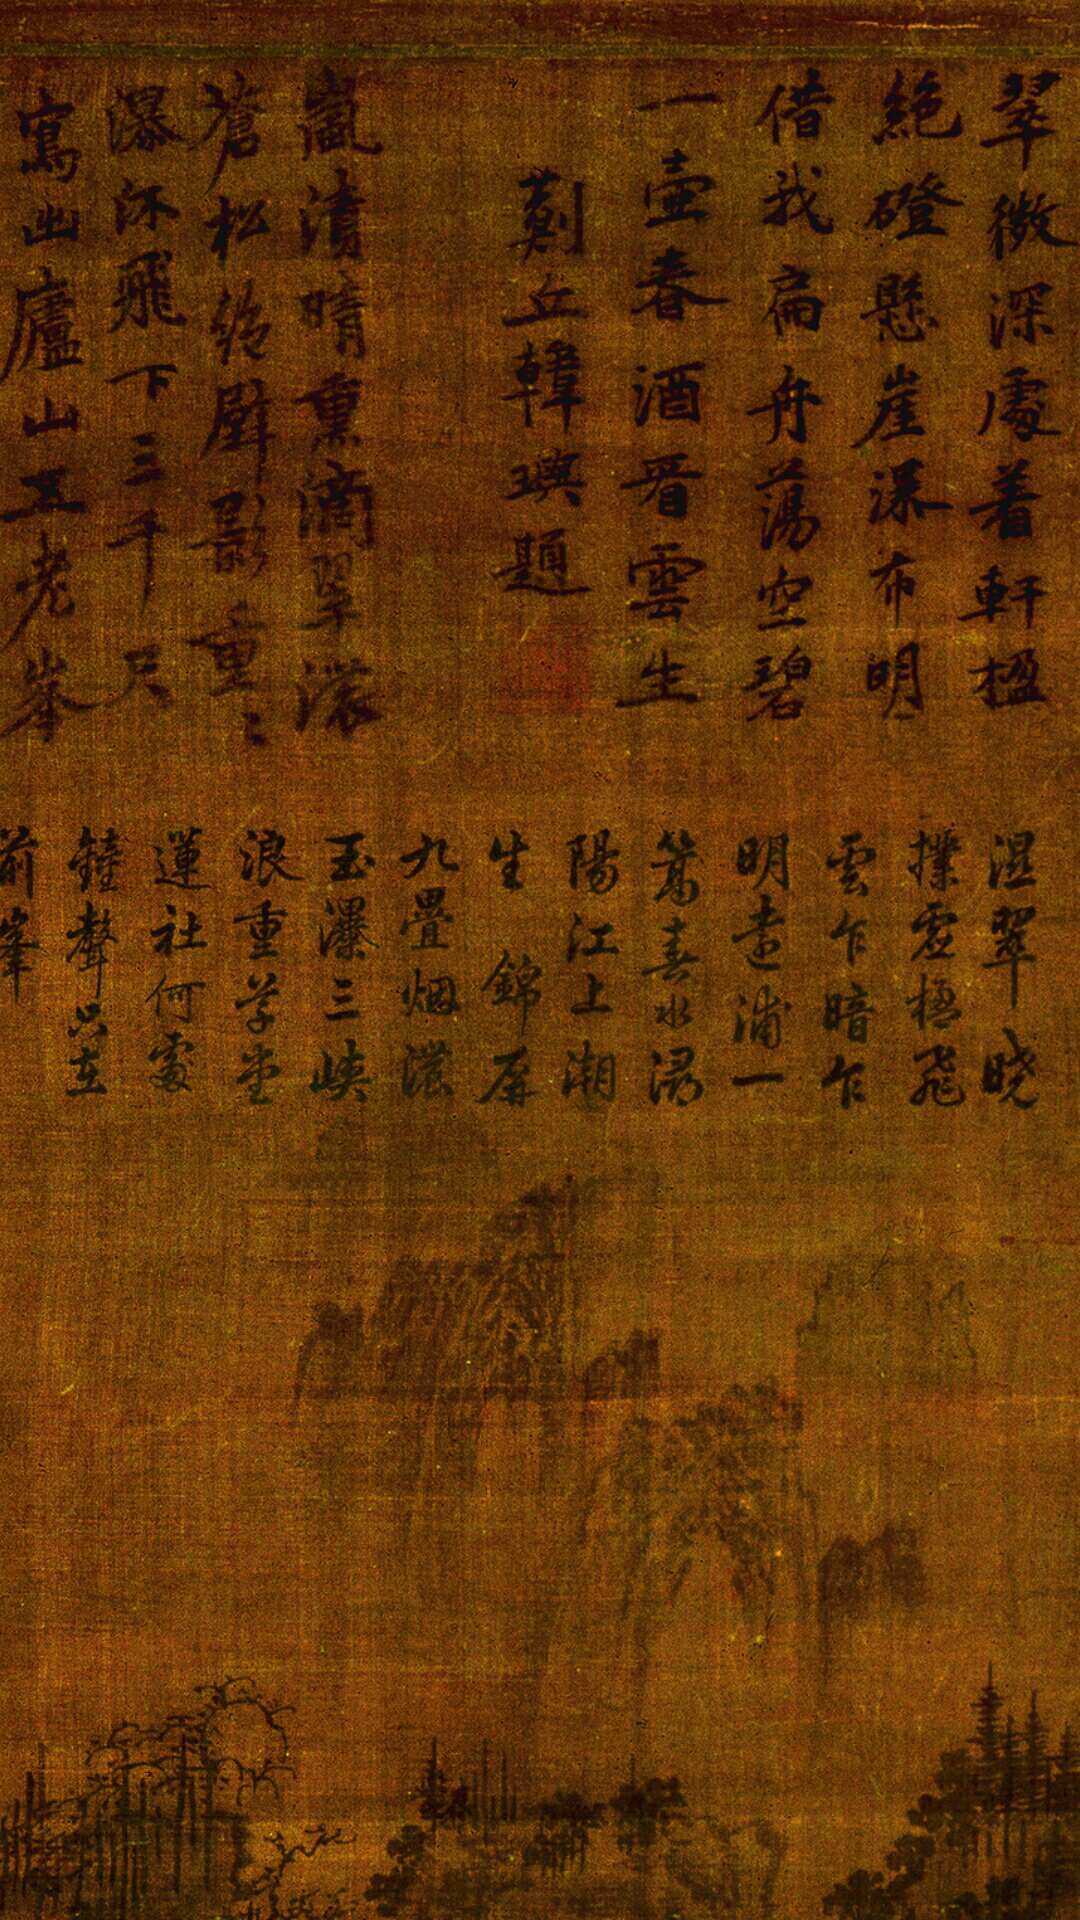 翠微深處着軒楹
絶磴懸崖瀑布明
借我扁舟蕩空碧
一壺春酒看雲生
薊丘韓璵題
嵐漬晴熏滴翠濃
蒼松絶壁影重〻
瀑流飛下三千尺
寫出廬山五老峯
濕翠曉
撲虛楹飛
雲乍暗乍
明遠浦一
篙春水漲
陽江上潮
生錦屏
九疊烟濃
玉瀑三峽
浪重草堂
蓮社何處
鐘聲只在
前峯